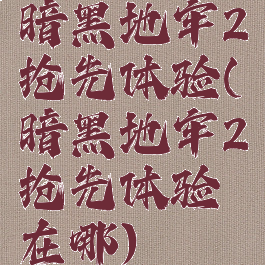 暗黑地牢2
抢先体验(
暗黑地牢2
抢先体验
在哪)